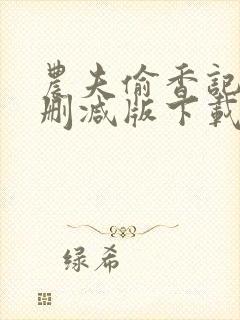 農夫偷香記
刪减版下載
绿希